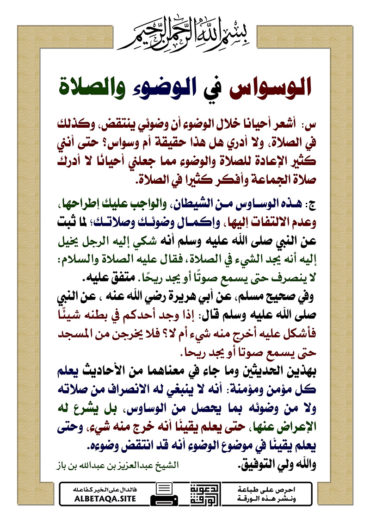 بسم الله الرحمن الرحيم
الوسواس في الوضوء والصلاة
س: أشعر أحيانا خلال الوضوء أن وضوئي ينتقض، وكذلك
في الصلاة، ولا أدري هل هذا حقيقة أم وسواس؟ حتى أنني
كثير الإعادة للصلاة والوضوء مما جعلني أحيانًا لا أدرك
صلاة الجماعة وأفكر كثيرا في الصلاة.
ج: هذه الوساوس من الشيطان، والواجب عليك إطراحها،
وعدم الالتفات إليها، وإكمال وضوئك وصلاتك؛ لما ثبت
عن النبي صلى الله عليه وسلم أنه شكي إليه الرجل يخيل
إليه أنه يجد الشيء في الصلاة، فقال عليه الصلاة والسلام:
لا ينصرف حتى يسمع صوتًا أو يجد ريحًا. متفق عليه.
وفي صحيح مسلم، عن أبي هريرة رضي الله عنه ، عن النبي
صلى الله عليه وسلم قال: إذا وجد أحدكم في بطنه شيئًا
فأشكل عليه أخرج منه شيء أم لا؟ فلا يخرجن من المسجد
حتى يسمع صوتا أو يجد ريحا.
بهذين الحديثين وما جاء في معناهما من الأحاديث يعلم
كل مؤمن ومؤمنة: أنه لا ينبغي له الانصراف من صلاته
ولا من وضوئه بما يحصل من الوساوس، بل يشرع له
الإعراض عنها، حتى يعلم يقينًا أنه خرج منه شيء، وحتى
يعلم يقينًا في موضوع الوضوء أنه قد انتقض وضوءه.
والله ولي التوفيق.
الشيخ عبدالعزيز بن عبدالله بن باز
احرص على طباعة
ونشر هذه الورقة
الدعوية
الورقة
فالدال على الخير كفاعله
ALBETAQA.SITE